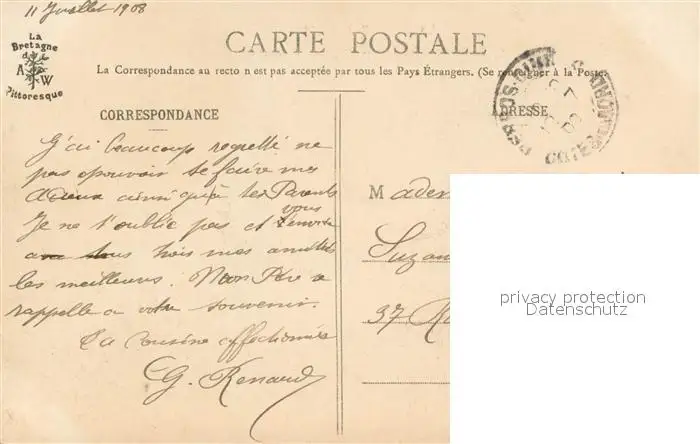 11 Juillet 1908
La
Bretagne
A W
Pittoresque
CARTE POSTALE
La Correspondance au recto n'est pas acceptée par tous les Pays Étrangers. (Se renseigner à la Poste)
CORRESPONDANCE
ADRESSE
PERROS-GUIREC
J'ai beaucoup regretté ne
pas pouvoir te faire mes
adieux ainsi qu'à tes Parents
Je ne t'oublie pas et vous envoie
à tous trois mes amitiés
les meilleurs. Mon Père se
rappelle a votre souvenir.
Ta cousine affectionnée
G. Renard
Madem
Suzan
37 R
privacy protection
Datenschutz